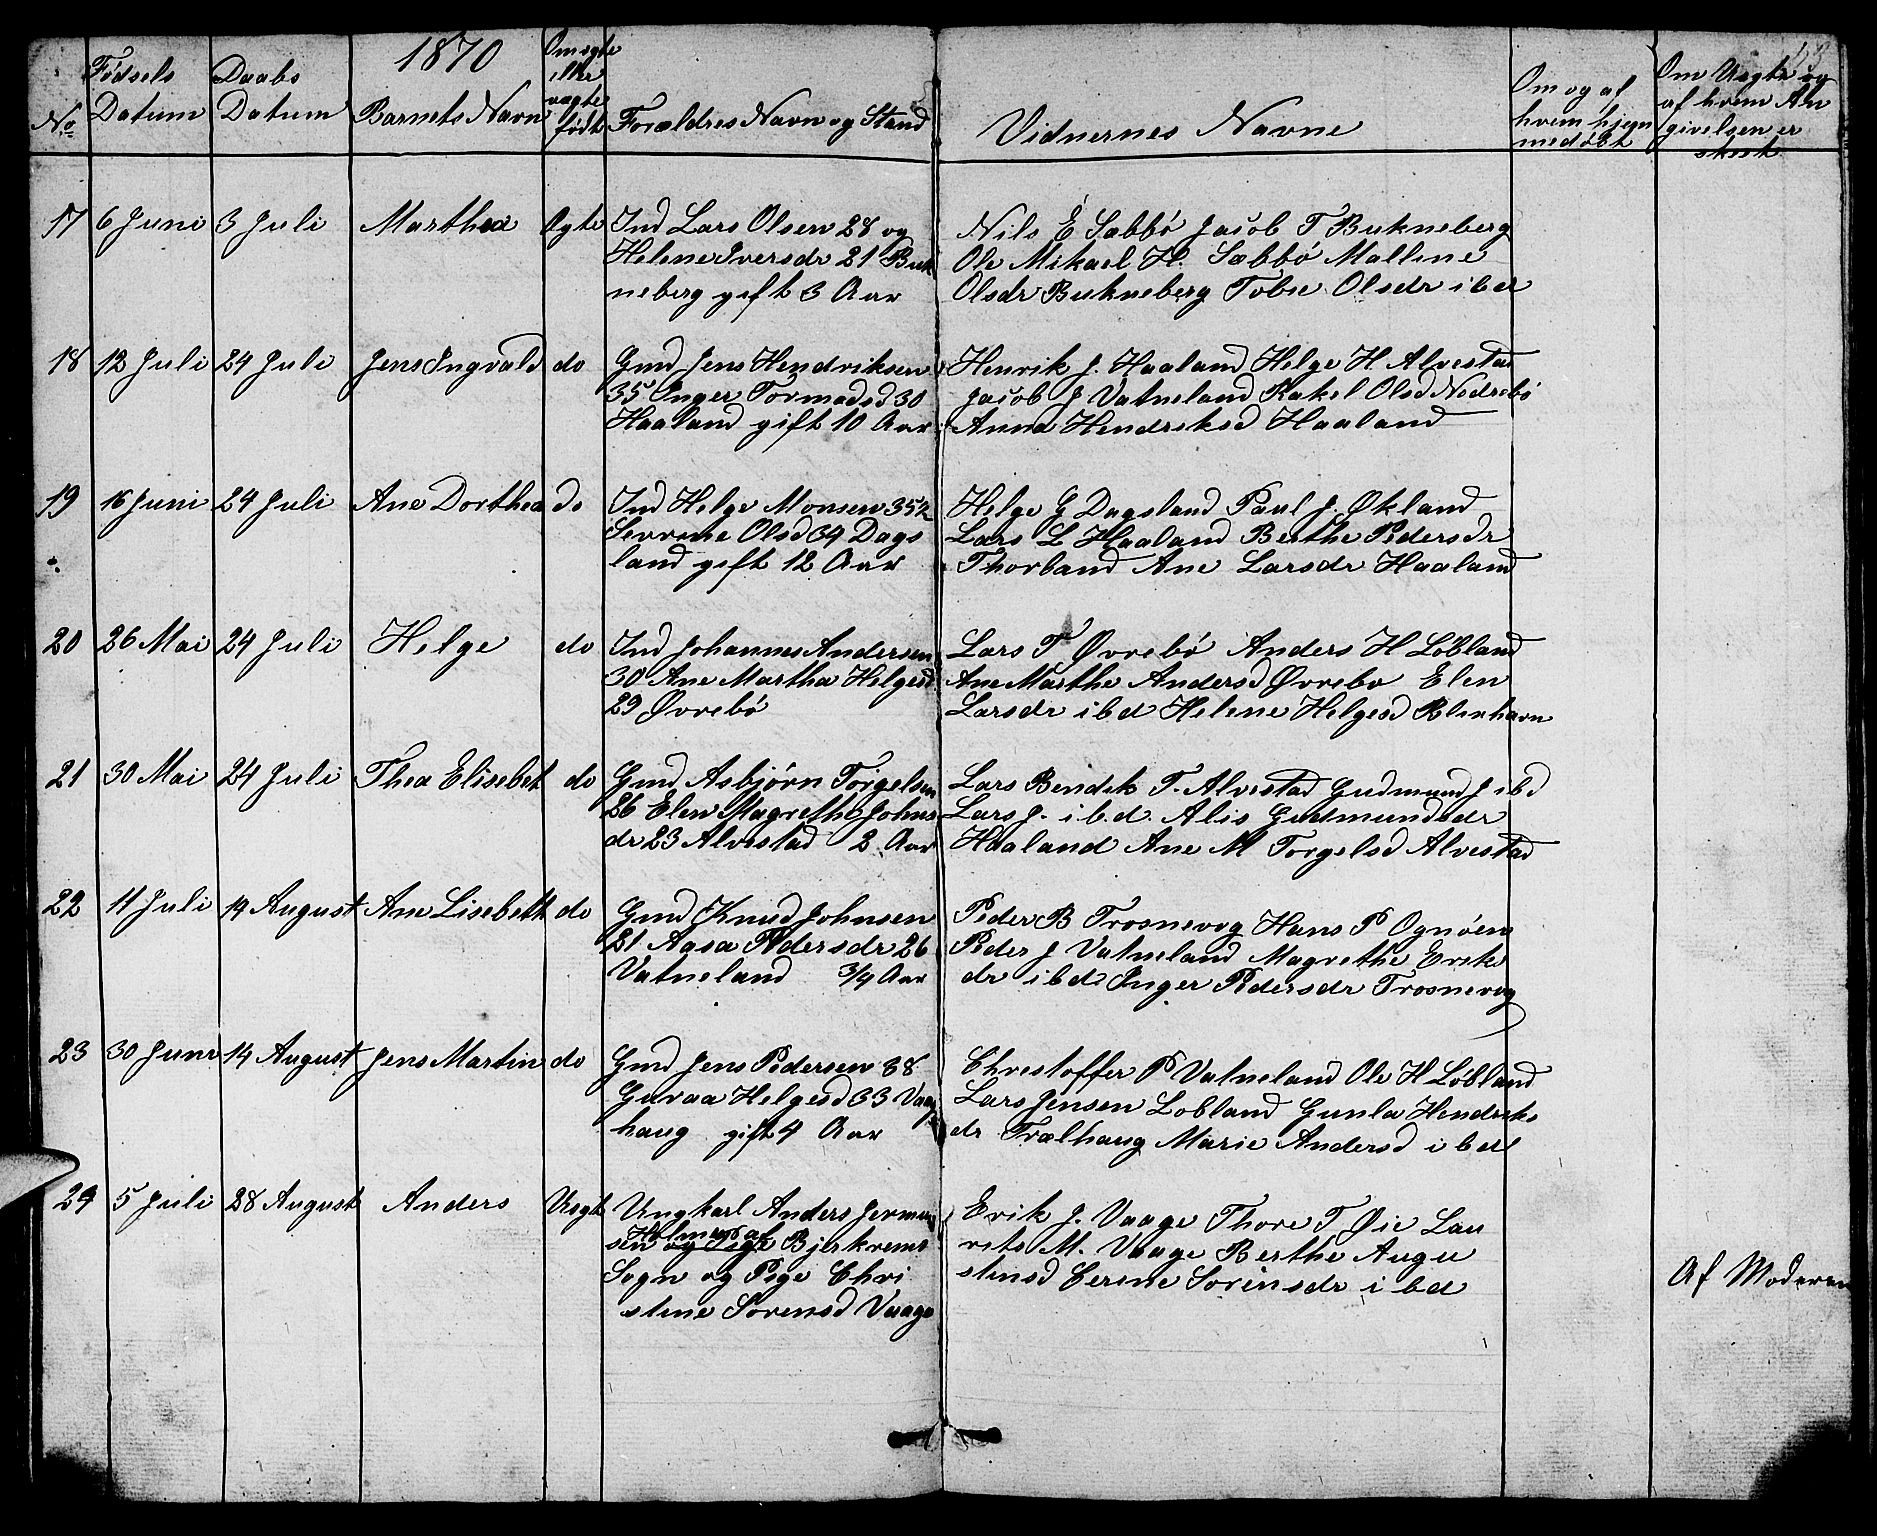 1870
No
Fødsels Datum
Daabs Datum
Barnets Navn
Om ægte eller uægte født
Forældres Navn og Stand
Vidnernes Navne
Om og af hvem hjemmedøbt
Om Uegte og af hvem Angivelsen er skeet
17 6 Juni 3 Juli Marthea Ægte Ind Lars Olsen 28 og Nils E Sæbbø Jacob T Bukneberg
Helene Iversdr 21 Buk Ole Mikael H. Sæbbø Mallene
neberg gift 3 Aar Olsdr Bukneberg Tobie Olsdr ibd
18 12 Juli 24 Juli Jens Ingvald do Gmd Jens Hendriksen Henrik J. Haaland Helge H Alvestad
35 Inger Tormodsd 30 Jacob J Vatneland Rakel Olsd Nedrebø
Haaland gift 10 Aar Anna Hendriksd Haaland
19 16 Juni 24 Juli Ane Dorthea do Ind Helge Monsen 35½ Helge G Dagsland Paul J. Økland
Serrene Olsd 34 Dags Lars L Haaland Berthe Pedersdr
land gift 12 Aar Thorland Ane Larsdr Haaland
20 26 Mai 24 Juli Helge do Ind Johannes Andersen Lars T Øvrebø Anders H Løbland
30 Ane Martha Helgesd Ane Marthe Andersd Øvrebø Elen
29 Øvrebø Larsdr ibd Helene Helgesd
21 30 Mai 24 Juli Thea Elisebet do Gmd Asbjørn Torgelsen Lars Bendik T. Alvestad Gudmund J ibd
26 Elen Magrethe Johns Lars J. ibd. Alis Gudmundsdr
dr 23 Alvestad 2 Aar Haaland Ane M Torgelsd Alvestad
22 11 Juli 14 August Ane Lisebeth do Gmd Knud Johnsen Peder B Trosnevog Hans P Ognøen
21 Aasa Pedersdr 26 Peder J Vatneland Magrethe Eriks
Vatneland 3/4 Aar dr ibd Inger Pedersdr Trosnevog
23 30 Juni 14 August Jens Martin do Gmd Jens Pedersen 38 Christoffer P Vatneland Ole H Løbland
Guraa Helgesd 33 Vaag Lars Jensen Lobland Gunla Hendriks
haug gift 4 Aar dr Trælhaug Marie Andersd ibd
24 5 Juli 28 August Anders Uegt Ungkarl Anders Jermun Erik J. Vaage Thore T Øie Lau
Holmen af
sen og Pige Bjerkrems rits M. Vaage Berthe Augu
Sogn og Pige Chri stinsd Cerine Sørinsdr ibd Af Moderen
stine Sørensd Vaage